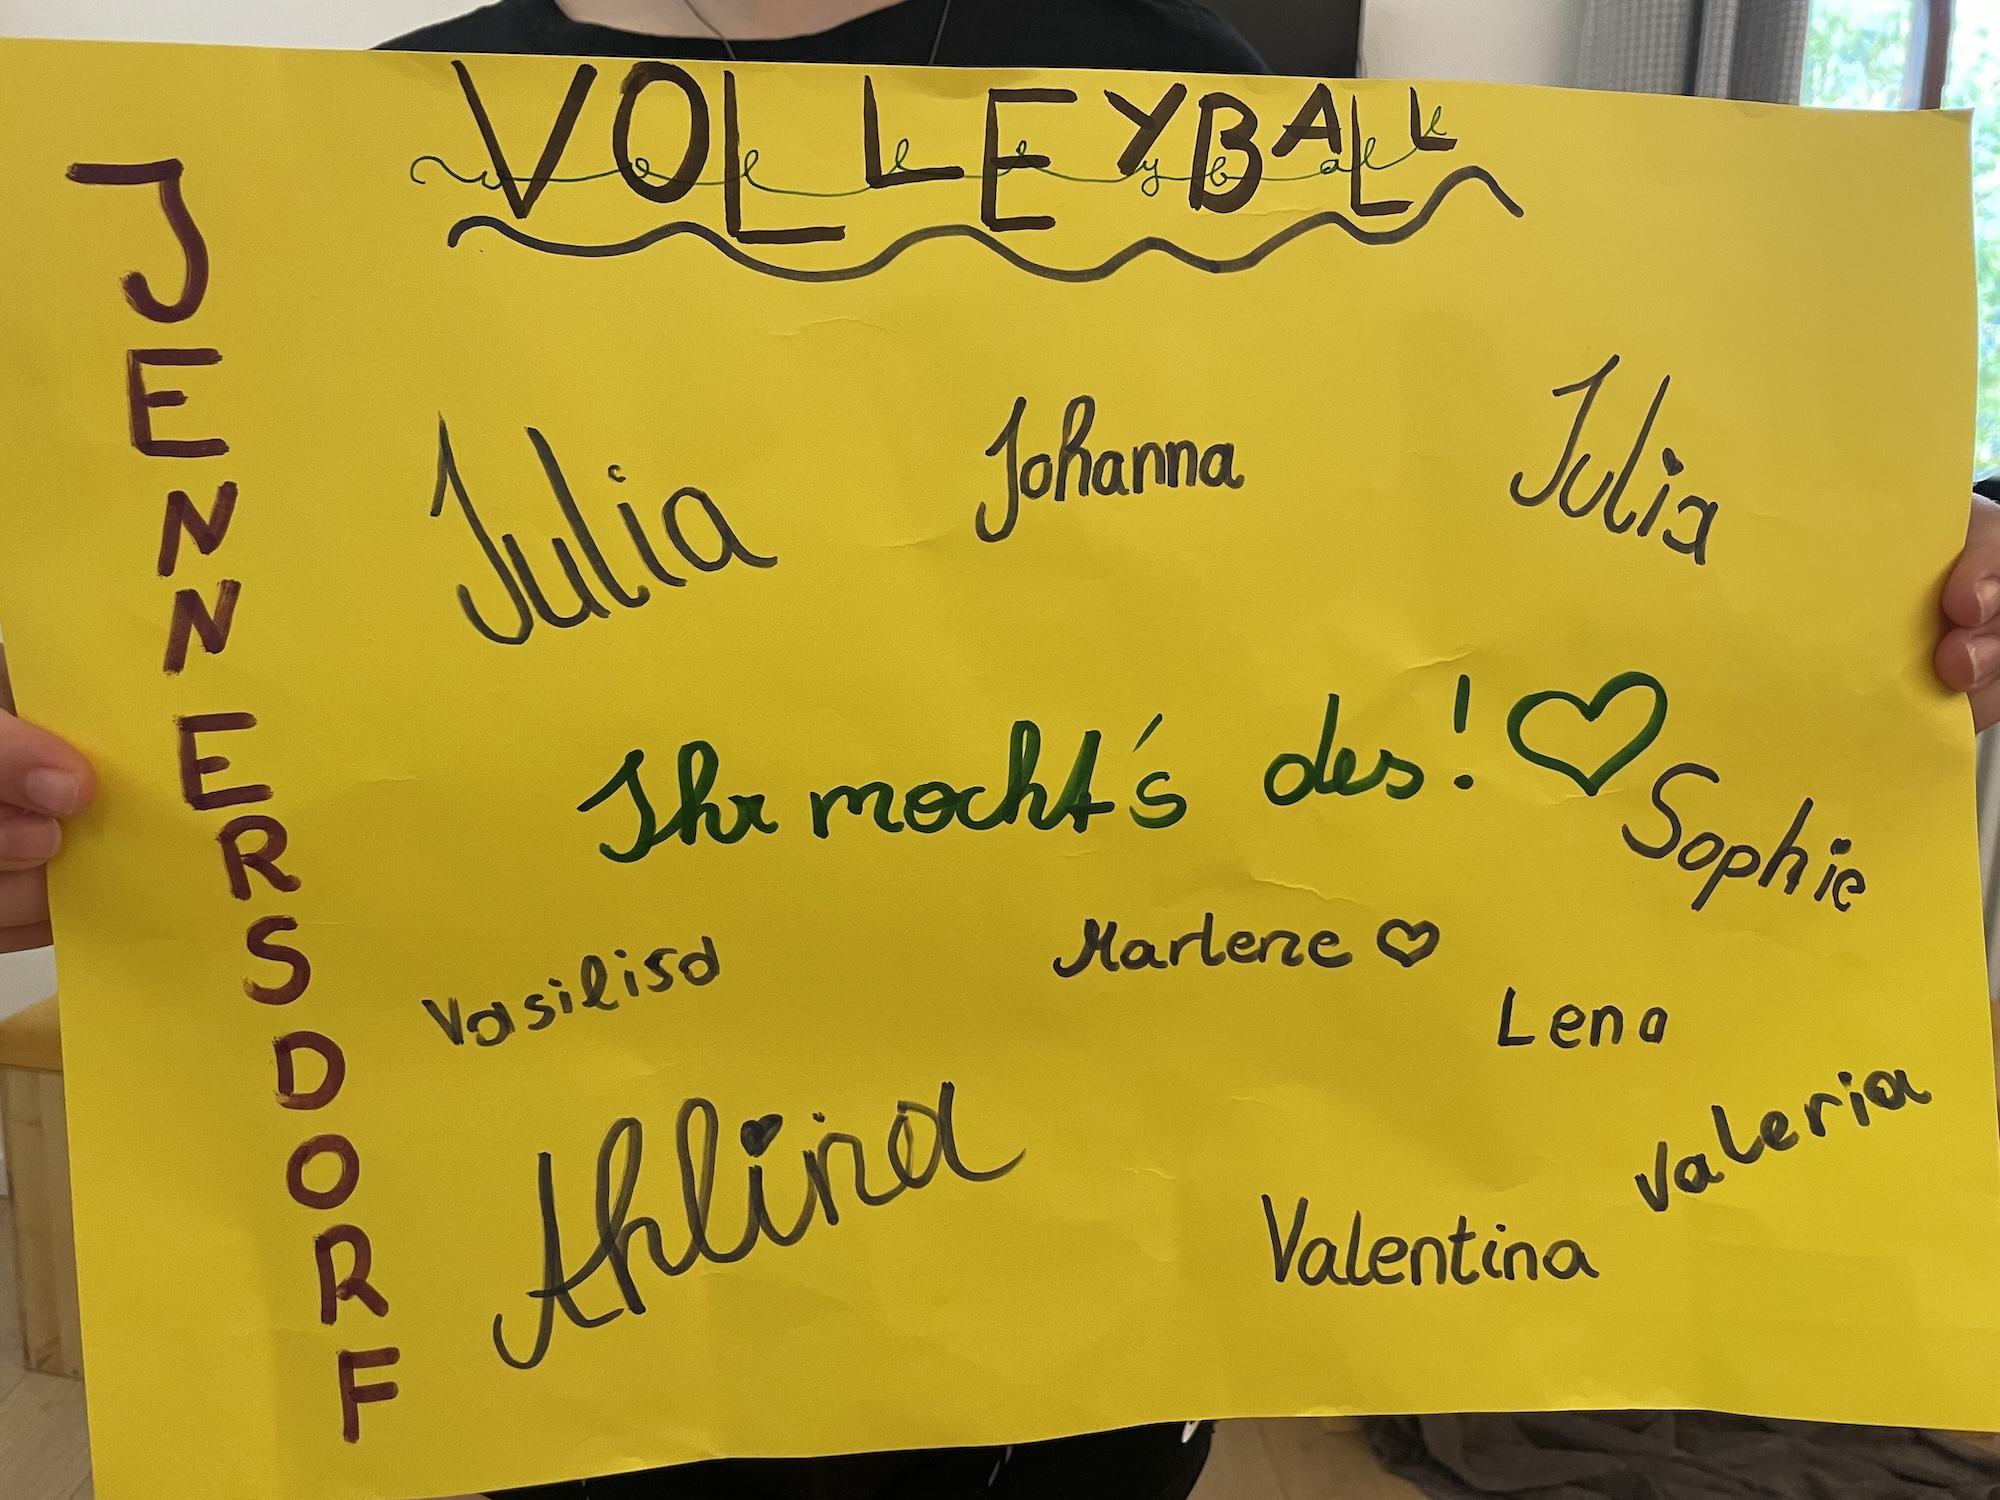 VOLLEYBALL
volleyball
JENNERSDORF
Julia
Johanna
Julia
Ihr mocht's des!
Sophie
Vasilisa
Marlene
Lena
Ahlina
Valeria
Valentina